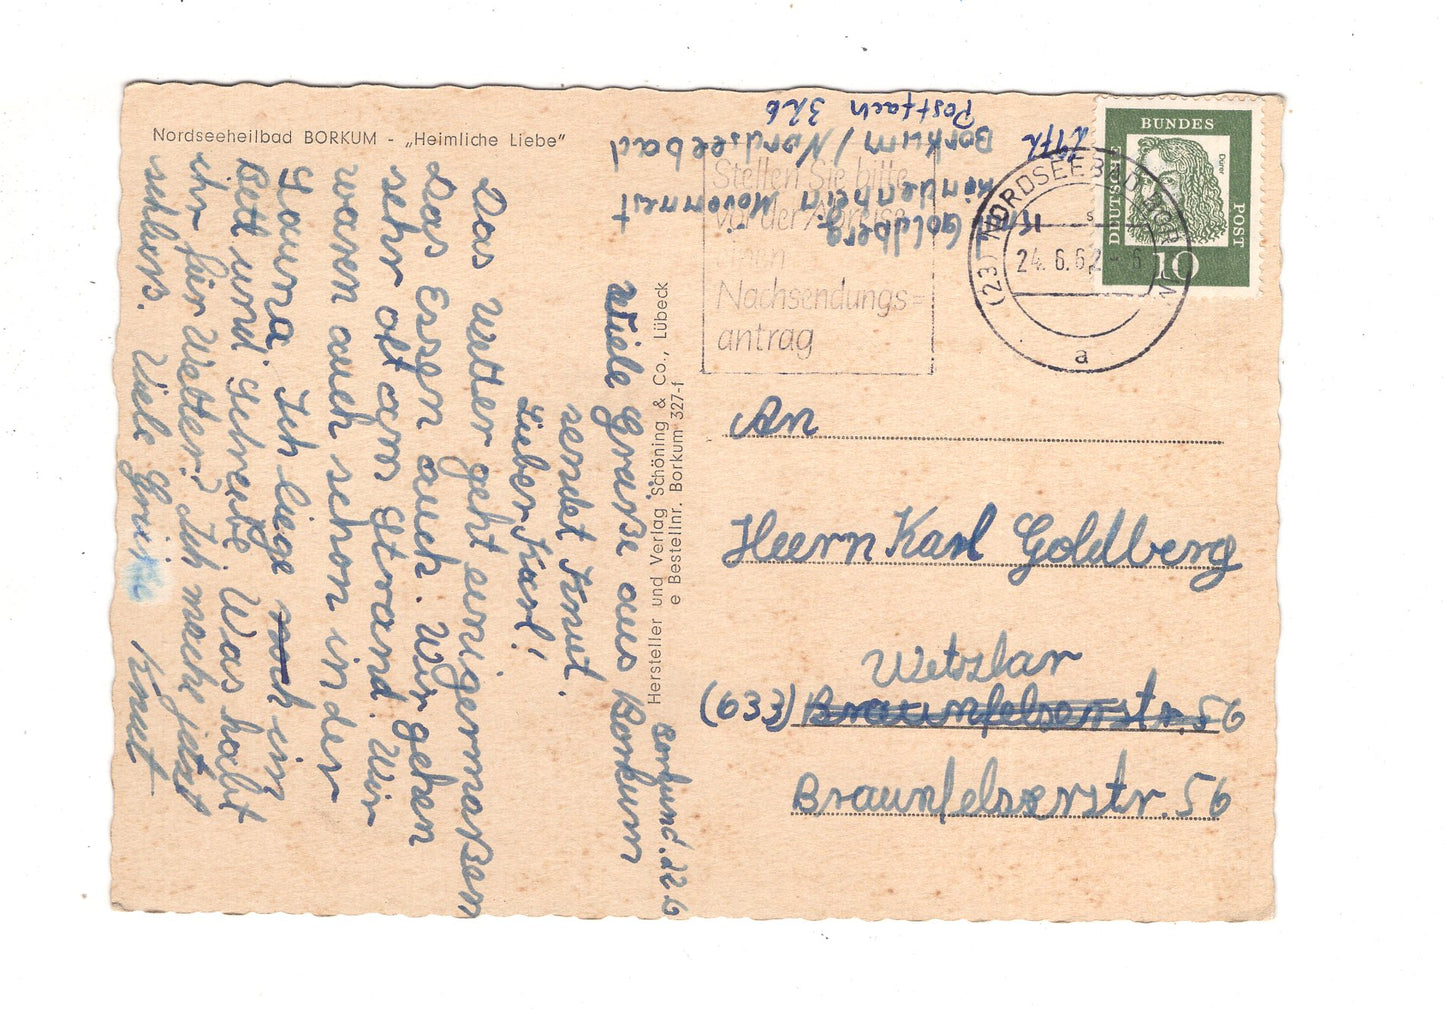 Nordseeheilbad BORKUM - „Heimliche Liebe"
Borkum d. 22.6
Viele Grüße aus Borkum
sendet Knut.
Lieber Karl!
Das Wetter geht einigermaßen
Das Essen auch. Wir gehen
sehr oft am Strand. Wir
waren auch schon in der
Sauna. Ich liege noch im
Bett und schreibe. Was habt
ihr für Wetter? Ich mache jetzt
schluss. Viele Grüße Knut
Hersteller und Verlag Schöning & Co., Lübeck
e Bestellnr. Borkum 327-f
Goldberg
Kinderheim Möwennest
Borkum/Nordseebad
Postfach 326
Stellen Sie bitte
vor der Abreise
einen
Nachsendungs=
antrag
(23) NORDSEEBAD BORKUM
24.6.62-6
a
DEUTSCHE
BUNDES
POST
Dürer
10
An
Herrn Karl Goldberg
Wetzlar
(633) Braunfelserstr. 56
Braunfelserstr. 56